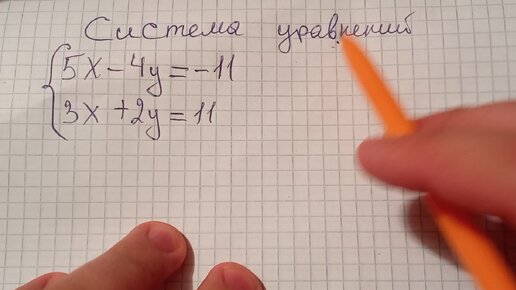 Система уравнений
5x - 4y = -11
3x + 2y = 11